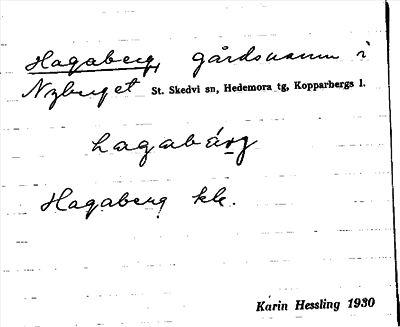 Hagaberg, gårdsnamn i
Nyberget St. Skedvi sn, Hedemora tg, Kopparbergs l.
hagabärg
Hagaberg kk.
Karin Hessling 1930